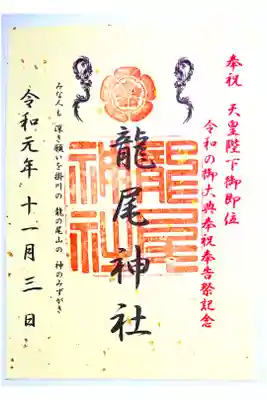 奉祝 天皇陛下御即位
令和の御大典奉祝奉告祭記念
龍尾神社
龍尾神社
みな人も 深き願いを掛川の 龍の尾山の 神のみずがき
令和元年 十一月 三日